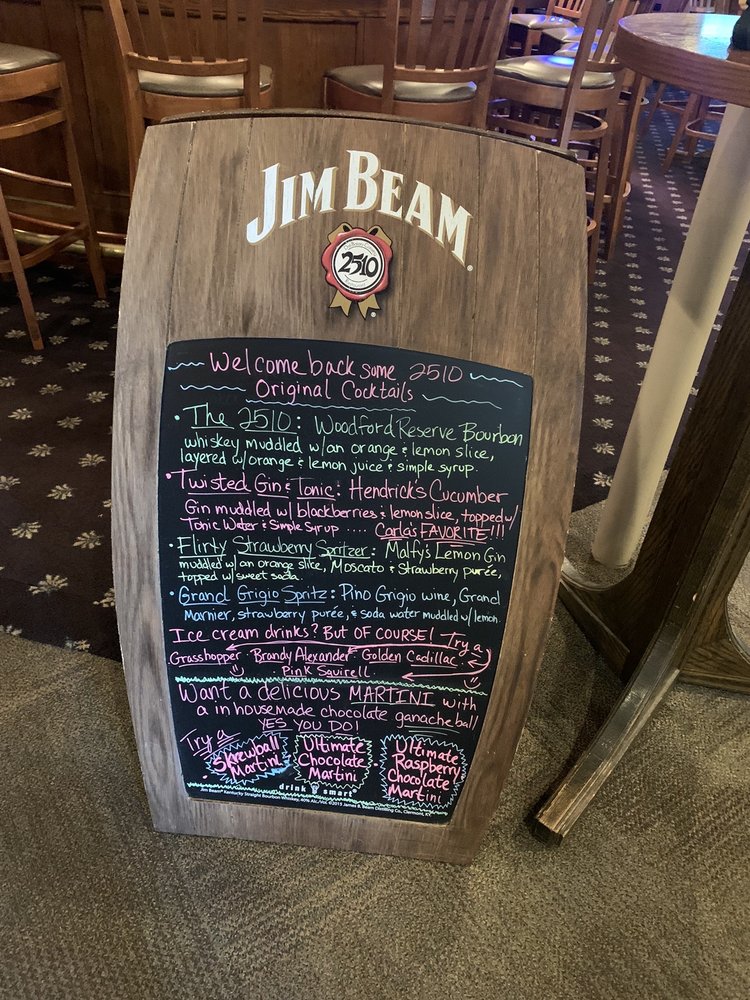 JIM BEAM®
2510
®
Welcome back some 2510
Original Cocktails
• The 2510: Woodford Reserve Bourbon
whiskey muddled w/an orange & lemon slice,
layered w/orange & lemon juice & simple syrup.
• Twisted Gin & Tonic: Hendrick's Cucumber
Gin muddled w/ blackberries & lemon slice, topped w/
Tonic Water & Simple Syrup .... Carla's FAVORITE!!!
• Flirty Strawberry Spritzer: Malfy's Lemon Gin
muddled w/ an orange slice, Moscato & Strawberry purée,
topped w/ sweet soda.
• Grand Grigio Spritz: Pino Grigio wine, Grand
Marnier, strawberry purée, & soda water muddled w/ lemon.
Ice cream drinks? But OF COURSE! Try a
Grasshopper Brandy Alexander Golden Cadillac
Pink Squirell
Want a delicious MARTINI with
a in housemade chocolate ganache ball
YES YOU DO!
Try a
• Skrewball Martini
Ultimate Chocolate Martini
• Ultimate Raspberry Chocolate Martini
drink smart®
Jim Beam® Kentucky Straight Bourbon Whiskey, 40% Alc./Vol. ©2015 James B. Beam Distilling Co., Clermont, KY.